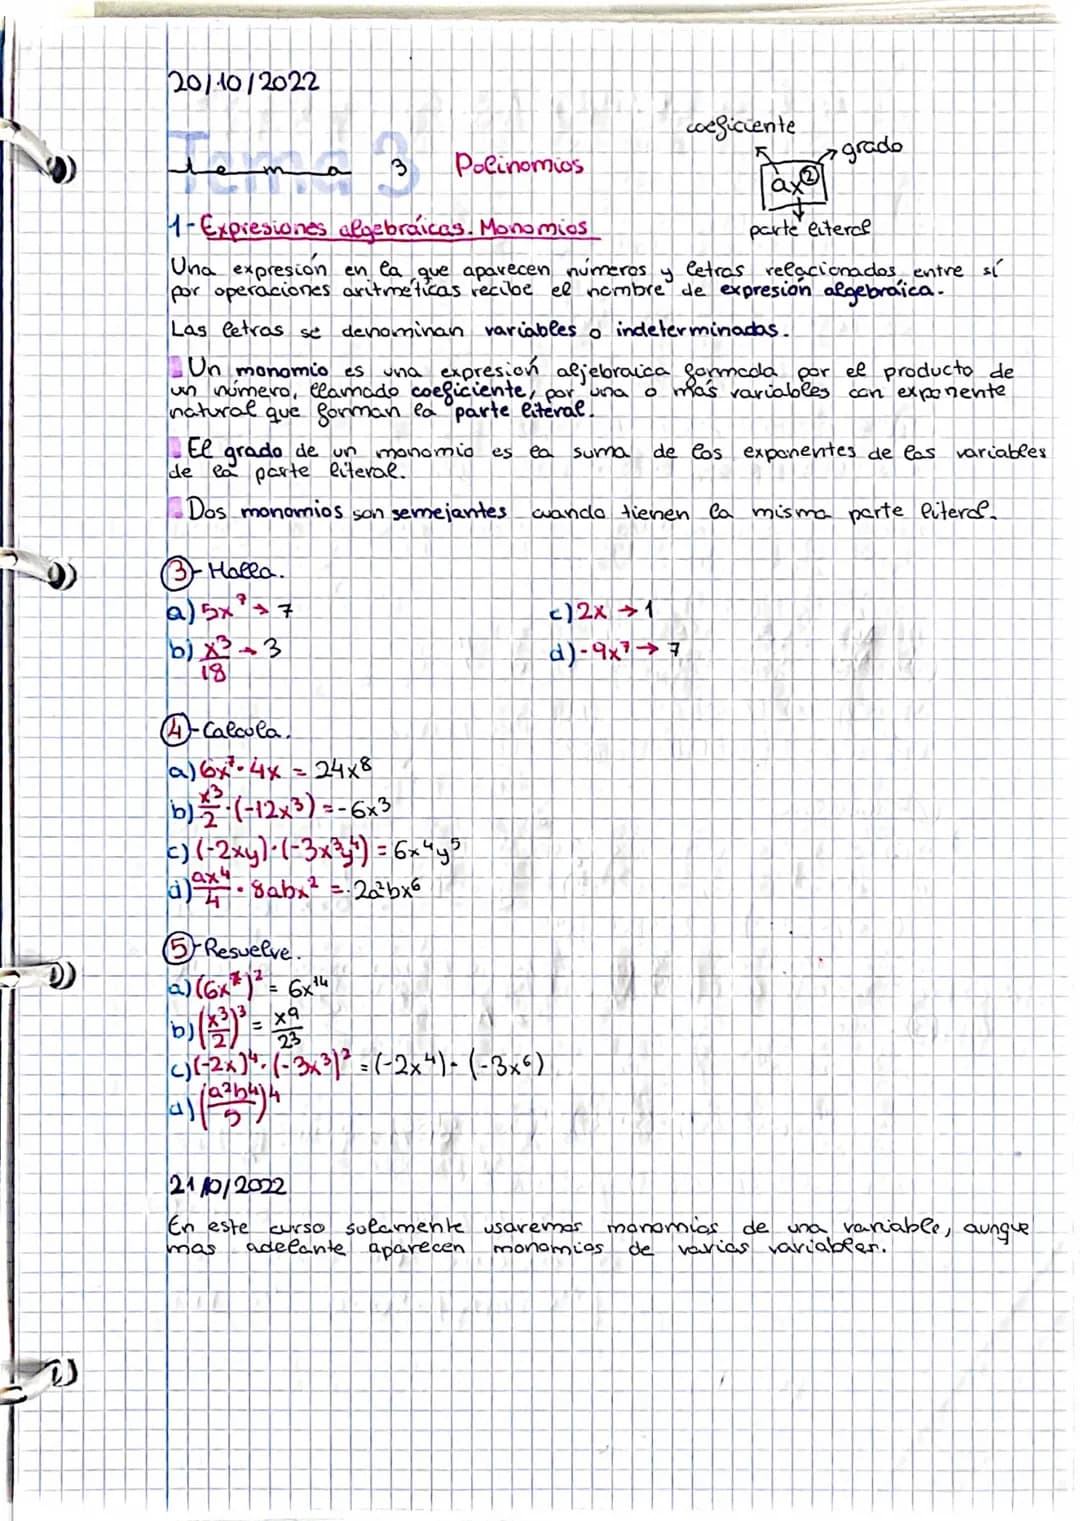 20/10/2022
coeficiente
grado
Tema 3
tema 3 Polinomios
ax²
1-Expresiones algebráicas. Monomios
parte literal
Una expresión en la que aparecen números y letras relacionados entre sí
por operaciones aritméticas recibe el nombre de expresión algebraíca.
Las letras se denominan variables o indeterminadas.
Un monomio es una expresión aljebraica formada por el producto de
un número, llamado coeficiente, por una o más variables con exponente
natural que forman la parte literal.
El grado de un monomio es la suma de los exponentes de las variables
de la parte literal.
Dos monomios son semejantes cuando tienen la misma parte literal.
3-Halla.
a) 5x⁷ → 7
c) 2x → 1
b) x³/18 → 3
d) -9x⁷ → 7
4-Calcula.
a) 6x⁷ · 4x = 24x⁸
b) x³/2 · (-12x³) = -6x³
c) (-2xy) · (-3x³y⁴) = 6x⁴y⁵
d) ax⁴/4 · 8abx² = 2a²bx⁶
5-Resuelve.
a) (6x⁷)² = 6x¹⁴
b) (x³/2)³ = x⁹/23
c) (-2x)⁴ · (-3x³)² = (-2x⁴) · (-3x⁶)
d) (a²b⁴/5)⁴
21/10/2022
En este curso solamente usaremos monomios de una variable, aunque
mas adelante aparecen monomios de varias variables.